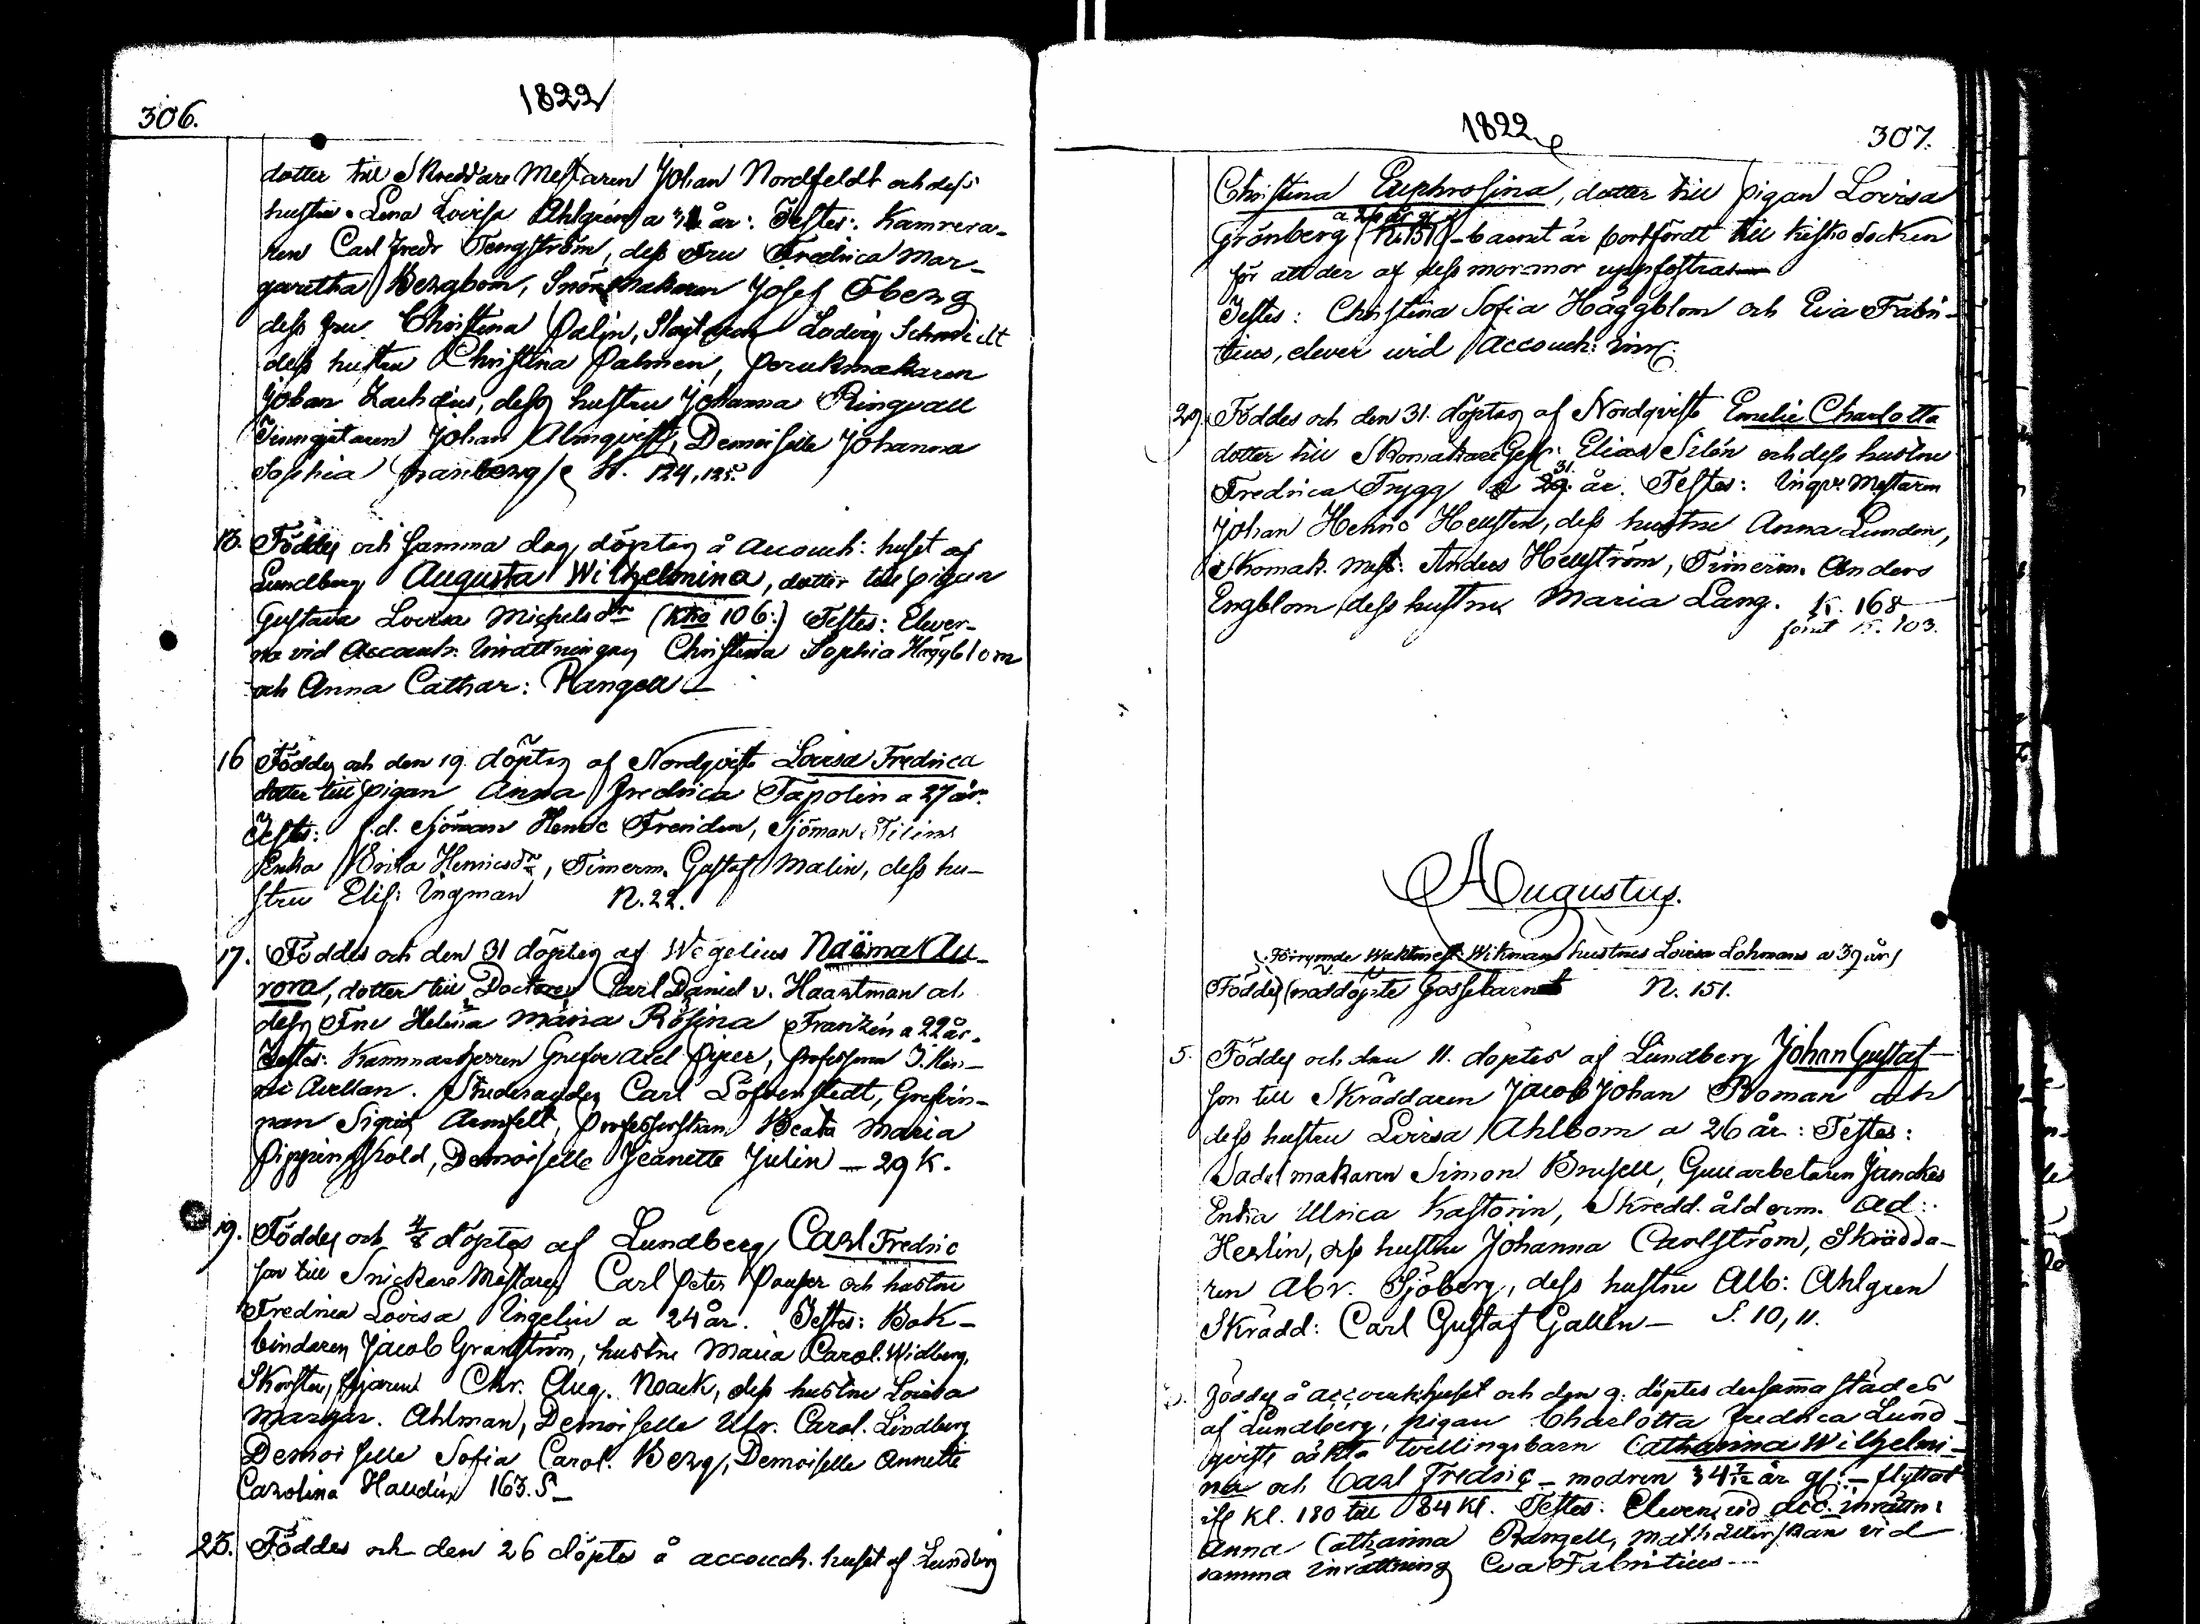 306.
1822
dotter till Skreddare Mestaren Johan Nordfeldt och dess
hustru Lena Lovisa Ahlgren a 31 år: Testes: Kamrera-
ren Carl Fredr Tengström, dess Fru Fredrica Mar-
garetha Bergbom, Snörmakaren Josef Öberg
dess fru Christina Palin, Slagtaren Lodvig Schmidt
dess hustru Christina Palmen, Perukmakaren
Johan Zachæus, dess hustru Johanna Ringvall
Tenngjutaren Johan Almqvist, Demoiselle Johanna
Sophia N. 124, 125.
13. Föddes och samma dag döptes å Accouch: huset af
Lundberg Augusta Wilhelmina, dotter till pigan
Gustava Lovisa Michelsdr (Kko 106:) Testes: Elever-
na vid Accouch. Inrättningen Christina Sophia Häggblom
och Anna Cathar: Rangell —
16 Föddes och den 19. döptes af Nordqvist Lovisa Fredrica
dotter till pigan Anna Fredrica Tapolin a 27 år.
Testes: f.d. Sjöman Henric Frenden, Sjöman
Enka Brita Henricsdr, Timerm. Gustaf Malin, dess hu-
stru Elis: Ingman N. 22.
17. Föddes och den 31 döptes af Wegelius Naëma Au-
rora, dotter till Doctoren Carl Daniel v. Haartman och
dess Fru Helena Maria Rosina Franzén a 22 år.
Testes: Kammarherren Grefve Axel Piper, professorn J. Hen-
ric Avellan. Studeranden Carl Löfvenstedt, Grefvin-
nan Sigrid Armfelt, professorskan Beata Maria
Pippingsköld, Demoiselle Jeanette Julin — 29 K.
19. Föddes och 4/8 döptes af Lundberg, Carl Fredric
son till Snickare Mästaren Carl Peter Pauser och hustru
Fredrica Lovisa Ingelin a 24 år. Testes: Bok-
bindaren Jacob Granström, hustru Maria Carol. Widberg,
Skorstensfejaren Chr. Aug. Noack, dess hustru Lovisa
Margar. Ahlman, Demoiselle Ulr. Carol. Lindberg
Demoiselle Sofia Carol. Berg, Demoiselle Annette
Carolina Haudin 163. S —
25. Föddes och den 26 döptes å accouch. huset af Lundberg
1822
307.
Christina Euphrosina, dotter till pigan Lovisa
Grönberg (N. 151) - barnet är bortfördt till Kisko Socken
för att der af dess mormor uppfostras —
Testes: Christina Sofia Häggblom och Eva Fabri-
tius, elever vid Accouch: Inr.
29. Föddes och den 31. döptes af Nordqvist Emelie Charlotta
dotter till Skomakare Ges: Elias Silén och dess hustru
31.
Fredrica Trygg a 29. år. Testes: Ringv. Mestaren
Johan Henric Hellsten, dess hustru Anna Lunden,
Skomak. mest: Anders Hellström, Timerm. Anders
Engblom dess hustru Maria Lang. K. 168
förut K. 103.
Augustus.
Förrymde Waktmest. Wikmans hustrus Lovisa Lohmans a 39 år
Föddes nöddöpte Gossebarnet N. 151.
5. Föddes och den 11. döptes af Lundberg Johan Gustaf —
son till Skräddaren Jacob Johan Boman och
dess hustru Lovisa Ahlbom a 26 år: Testes:
Sadelmakaren Simon Brusell, Gullarbetaren Janckes
Enka Ulrica Kastorin, Skredd. ålderm. Ad:
Herlin, dess hustru Johanna Carlström, Skrädda-
ren Abr. Sjöberg, dess hustru Alb: Ahlgren
Skrädd: Carl Gustaf Gallén — S. 10, 11.
5. Föddes å accouchhuset och den 9. döptes dersammastädes
af Lundberg, pigan Charlotta Fredrica Lund-
qvists oäkta tvillingsbarn Catharina Wilhelmi-
na och Carl Fredric — modren 34 7/12 år gl: — flyttat
ifr Kl. 180 till 84 Kl. Testes: Eleven vid Acc. inrättn:
Anna Catharina Rangell, mathållerskan vid
samma inrättning Eva Fabritius —